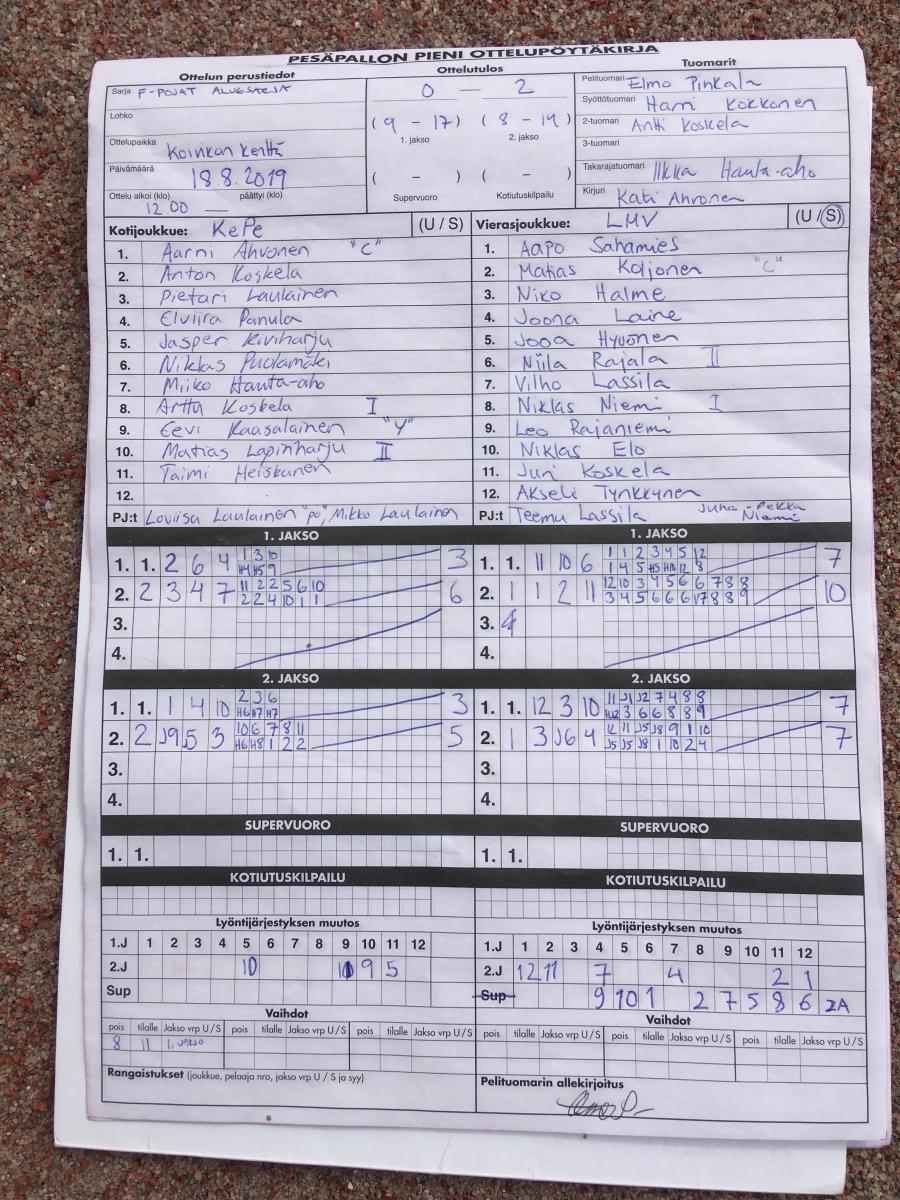 PESÄPALLON PIENI OTTELUPÖYTÄKIRJA
Ottelun perustiedot Ottelutulos Tuomarit
Sarja F-POJAT ALUESARJA
Lohko
Ottelupaikka Koinkon kenttä
Päivämäärä 18.8.2019
Ottelu alkoi (klo) päättyi (klo)
12.00 —
0 — 2
(9 - 17) (8 - 14)
1. jakso 2. jakso
( - ) ( - )
Supervuoro Kotiutuskilpailu
Pelituomari Elmo Pinkala
Syöttötuomari Harri Kokkonen
2-tuomari Antti Koskela
3-tuomari
Takarajatuomari Ilkka Hauta-aho
Kirjuri Kati Ahvonen
Kotijoukkue: KePe (U / S)
1. Aarni Ahvonen "C"
2. Anton Koskela
3. Pietari Laulainen
4. Elviira Panula
5. Jasper Kiviharju
6. Niklas Puolamäki
7. Miiko Hauta-aho
8. Arttu Koskela I
9. Eevi Kaasalainen "Y"
10. Matias Lapinharju II
11. Taimi Heiskanen
12.
PJ:t Loviisa Laulainen "po", Mikko Laulainen
Vierasjoukkue: LMV (U / S)
1. Aapo Sahamies
2. Matias Koljonen "C"
3. Niko Halme
4. Joona Laine
5. Jooa Hyvönen
6. Niila Rajala II
7. Vilho Lassila
8. Niklas Niemi I
9. Leo Rajaniemi
10. Niklas Elo
11. Juri Koskela
12. Akseli Tynkkynen
PJ:t Teemu Lassila Juha-Pekka Niemi
1. JAKSO 1. JAKSO
1. 1. 2 6 4 1 3 10 3
H4 H5 9
2. 2 3 4 7 11 2 2 5 6 10 6
2 2 4 10 1 1
3.
4.
1. 1. 11 10 6 1 1 2 3 4 5 12 7
1 4 5 H5 H10 12 8
2. 1 1 2 11 12 10 3 4 5 6 6 7 8 8 10
3 4 5 6 6 6 V7 8 8 9
3.
4.
2. JAKSO 2. JAKSO
1. 1. 1 4 10 2 3 6 3
H6 H7 H7
2. 2 J9 5 3 10 6 7 8 11 5
H6 H8 1 2 2
3.
4.
1. 1. 12 3 10 11 J1 J2 7 4 8 8 7
H12 3 6 6 8 8 9
2. 1 3 J6 4 12 11 J5 J8 9 1 10 7
J5 J5 J8 1 10 2 4
3.
4.
SUPERVUORO SUPERVUORO
1. 1. 1. 1.
KOTIUTUSKILPAILU KOTIUTUSKILPAILU
Lyöntijärjestyksen muutos
1.J 1 2 3 4 5 6 7 8 9 10 11 12
2.J 10 10 9 5
Sup
Vaihdot
pois tilalle Jakso vrp U / S pois tilalle Jakso vrp U / S pois tilalle Jakso vrp U / S
8 11 1. JAKSO
Rangaistukset (joukkue, pelaaja nro, jakso vrp U / S ja syy)
Lyöntijärjestyksen muutos
1.J 1 2 3 4 5 6 7 8 9 10 11 12
2.J 12 11 7 4 2 1
Sup 9 10 1 2 7 5 8 6 2A
Vaihdot
pois tilalle Jakso vrp U / S pois tilalle Jakso vrp U / S pois tilalle Jakso vrp U / S
Pelituomarin allekirjoitus